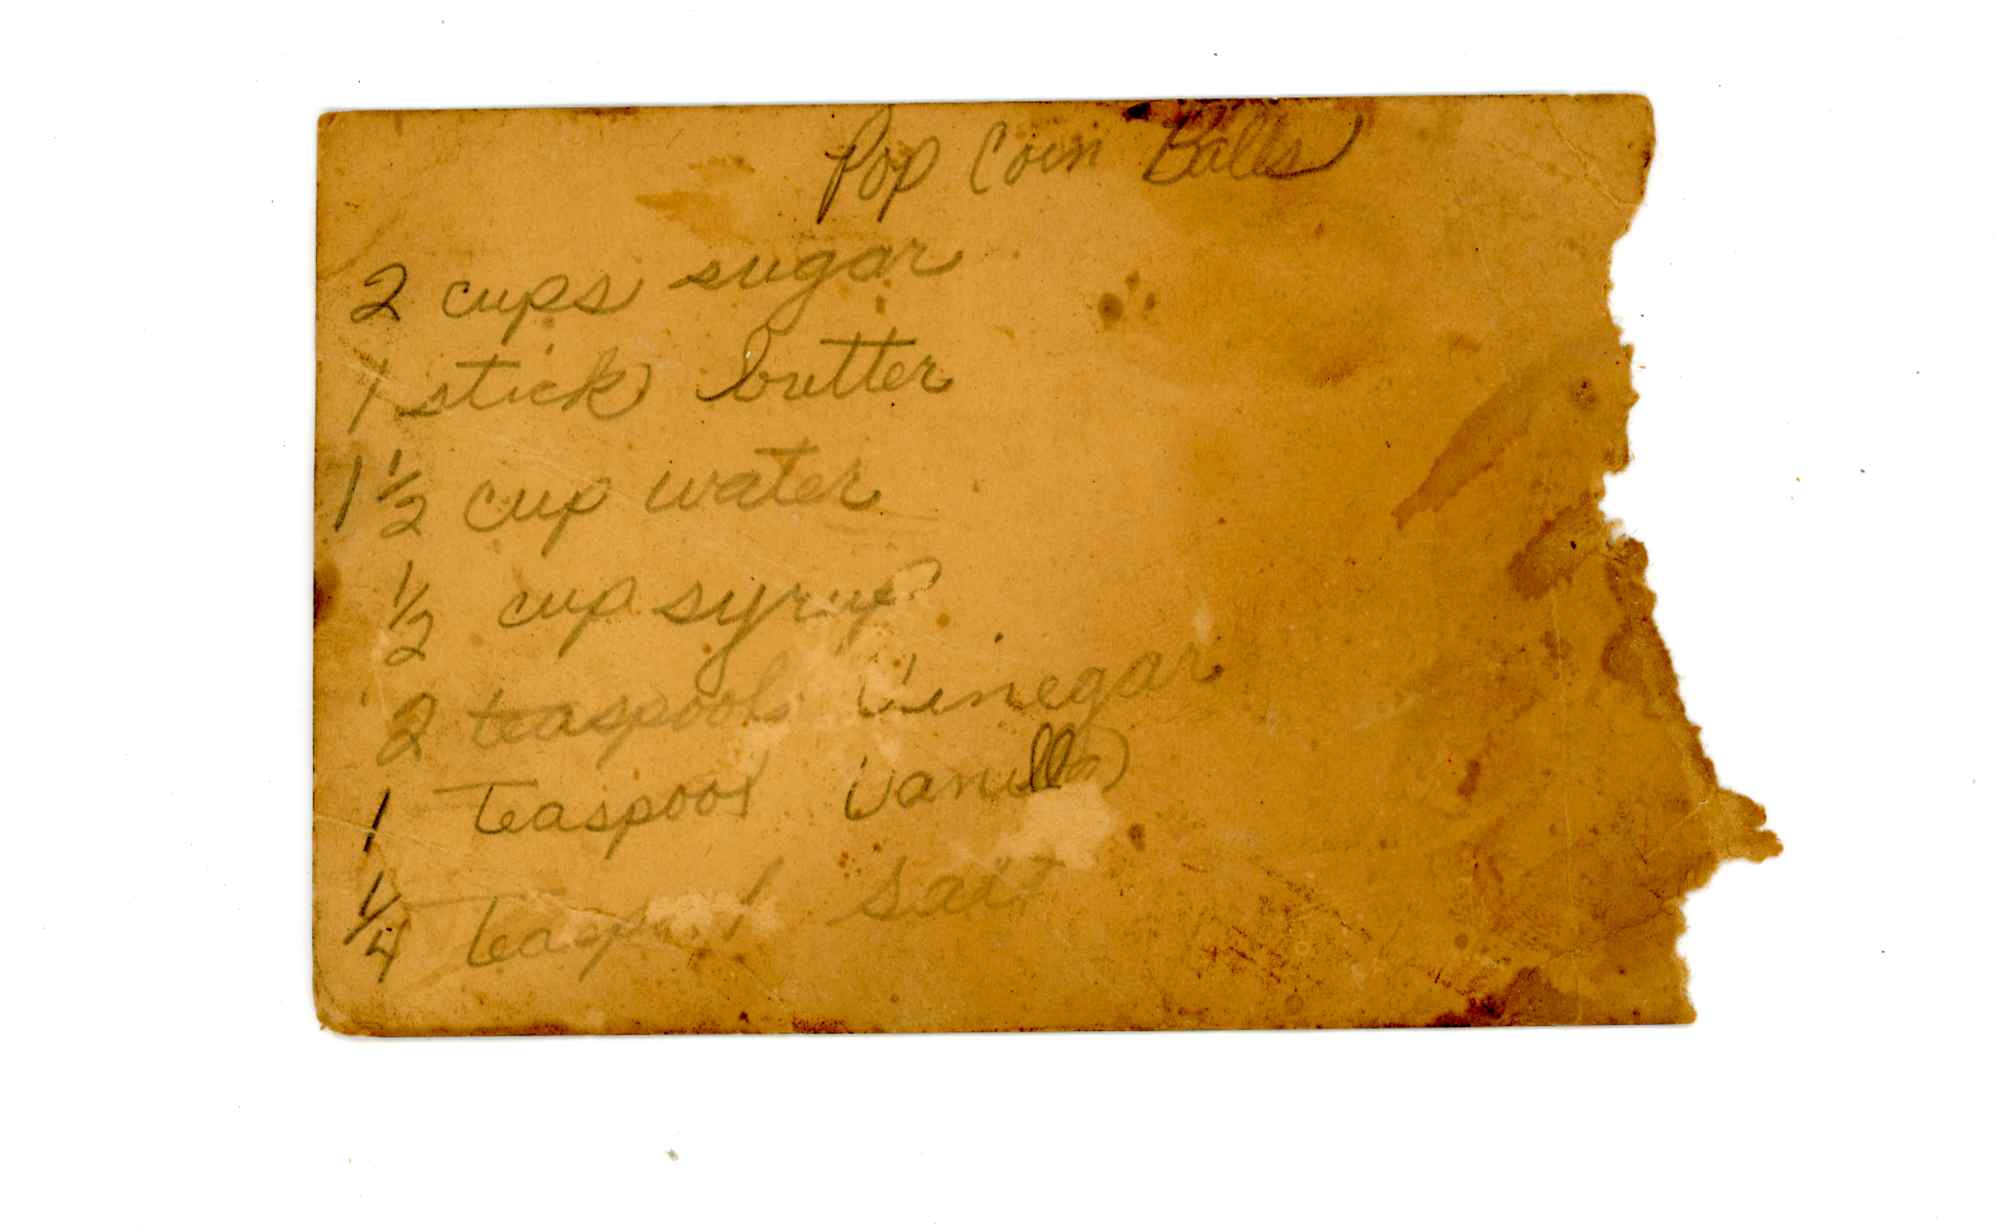 Pop Corn Balls
2 cups sugar
1 stick butter
1 1/2 cup water
1/2 cup syrup
2 teaspools vinegar
1 Teaspool vanilla
1/4 salt